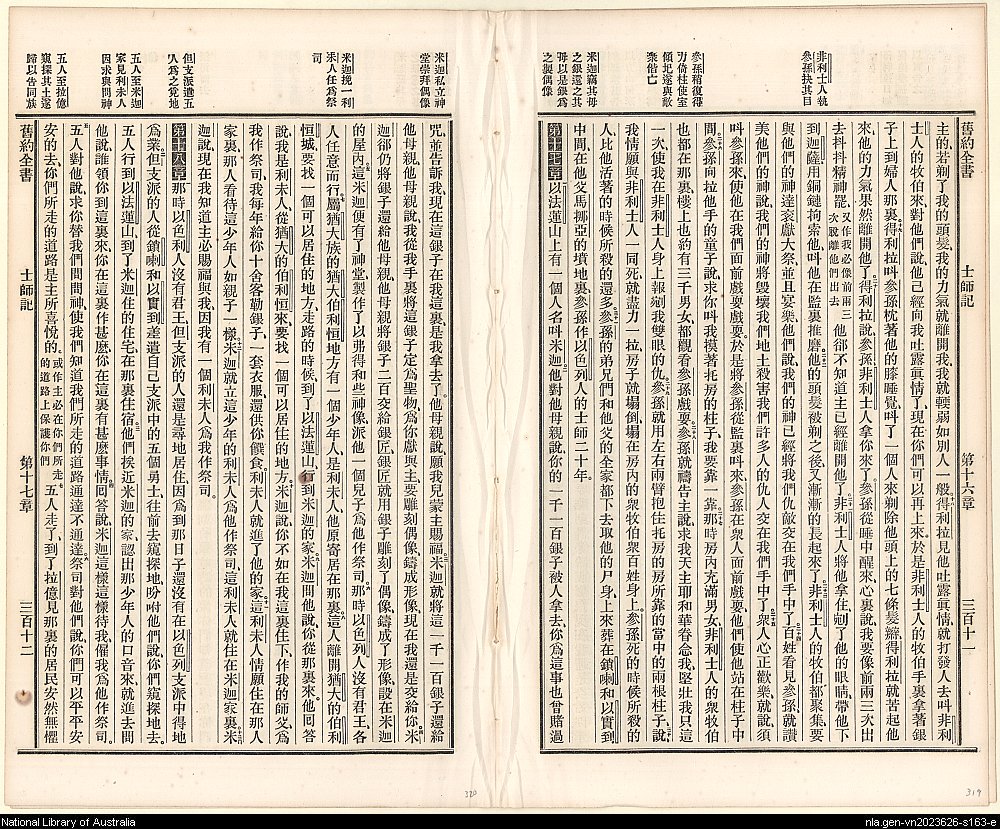 舊約全書 士師記 第十六章 三百十一
非利士人執
參孫抉其目
參孫稍復得
力倚柱使室
傾圮遂與敵
衆偕亡
米迦竊其母
之銀還之其
母以是銀爲
之製偶像
主的若剃了我的頭髮我的力氣就離開我我就輭弱如別人一般得利拉見他吐露眞情就打發人去呌非利
士人的牧伯來對他們說他已經向我吐露眞情了現在你們可以再上來於是非利士人的牧伯手裏拿著銀
子上到婦人那裏得利拉呌參孫枕著他的膝睡覺呌了一個人來剃除他頭上的七條髮辮得利拉就苦起他
來他的力氣果然離開他了得利拉說參孫非利士人拿你來了參孫從睡中醒來心裏說我要像前兩三次出
去抖抖精神罷又作我必像前兩三次脫離他們出去他卻不知道主已經離開他了非利士人將他拿住剜了他的眼睛帶他下
到迦薩用銅鏈拘索他呌他在監裏推磨他的頭髮被剃之後又漸漸的長起來了非利士人的牧伯都聚集要
與他們的神達袞獻大祭並且宴樂他們說我們的神已經將我們仇敵交在我們手中了百姓看見參孫就讚
美他們的神說我們的神將毀壞我們地土殺害我們許多人的仇人交在我們手中了衆人心正歡樂就說須
呌參孫來使他在我們面前戲耍於是將參孫從監裏呌來參孫在衆人面前戲耍他們使他站在柱子中
間參孫向拉他手的童子說求你呌我摸著托房的柱子我要靠一靠那時房內充滿男女非利士人的衆牧伯
也都在那裏樓上也約有三千男女都觀看參孫戲耍參孫就禱告主說求我天主耶和華眷念我堅壯我只這
一次使我在非利士人身上報剜我雙眼的仇參孫就用左右兩臂抱住托房的房所靠的當中的兩根柱子說
我情願與非利士人一同死就盡力一拉房子就塌倒塌在房內的衆牧伯衆百姓身上參孫死的時候所殺的
人比他活著的時候所殺的還多參孫的弟兄們和他父的全家都下去取他的尸身上來葬在鎖喇和以實到
中間在他父馬挪亞的墳地裏參孫作以色列人的士師二十年
第十七章以法蓮山上有一個人名呌米迦他對他母親說你的一千一百銀子被人拿去你爲這事也曾賭過
米迦私立神
堂崇拜偶像
米迦挽一利
未人任爲祭
司
但支派遣五
人爲之覓地
五人至米迦
家見利未人
因求與問神
五人至拉億
窺探其土遂
歸以告同族
咒並告訴我現在這銀子在我這裏是我拿去了他母親說願我兒蒙主賜福米迦就將這一千一百銀子還給
他母親他母親說我從我手裏將這銀子定爲聖物爲你獻與主要雕刻偶像鑄成形像現在我還是交給你米
迦卻仍將銀子還給他母親他母親將銀子二百交給銀匠銀匠就用銀子雕刻了偶像鑄成了形像設在米迦
的屋內這米迦便有了神堂製作了以弗得和些神像派他一個兒子爲他作祭司那時以色列人沒有君王各
人任意而行屬猶大族的猶大伯利恒地方有一個少年人是利未人他原寄居在那裏這人離開猶大的伯利
恒城要找一個可以居住的地方走路的時候到了以法蓮山行到米迦的家米迦問他說你從那裏來他回答
說我是利未人從猶大的伯利恒來要找一個可以居住的地方米迦說你不如在我這裏住下作我的師父爲
我作祭司我每年給你十舍客勒銀子一套衣服還供你饌食利未人就進了他的家這利未人情願住在那人
家裏那人看待這少年人如親子一樣米迦就立這少年的利未人爲他作祭司這利未人就住在米迦家裏米
迦說現在我知道主必賜福與我因我有一個利未人爲我作祭司
第十八章那時以色列人沒有君王但支派的人還是尋地居住因爲到那日子還沒有在以色列支派中得地
爲業但支派的人從鎖喇和以實到差遣自己支派中的五個勇士往前去窺探地吩咐他們說你們窺探地去
五人行到以法蓮山到了米迦住的住宅在那裏住宿他們挨近米迦的家認出那少年人的口音來就進去問
他說誰領你到這裏來你在這裏作甚麽你在這裏有甚麽事情回答說米迦這樣這樣待我僱我爲他作祭司
五人對他說求你替我們問問神使我們知道我們所走的道路通達不通達祭司對他們說你們可以平平安
安的去你們所走的道路是主所喜悅的或作主必在你們所走的道路上保護你們五人走了到了拉億見那裏的居民安然無懼
舊約全書 士師記 第十七章 三百十二
320
319
National Library of Australia
nla.gen-vn2023626-s163-e